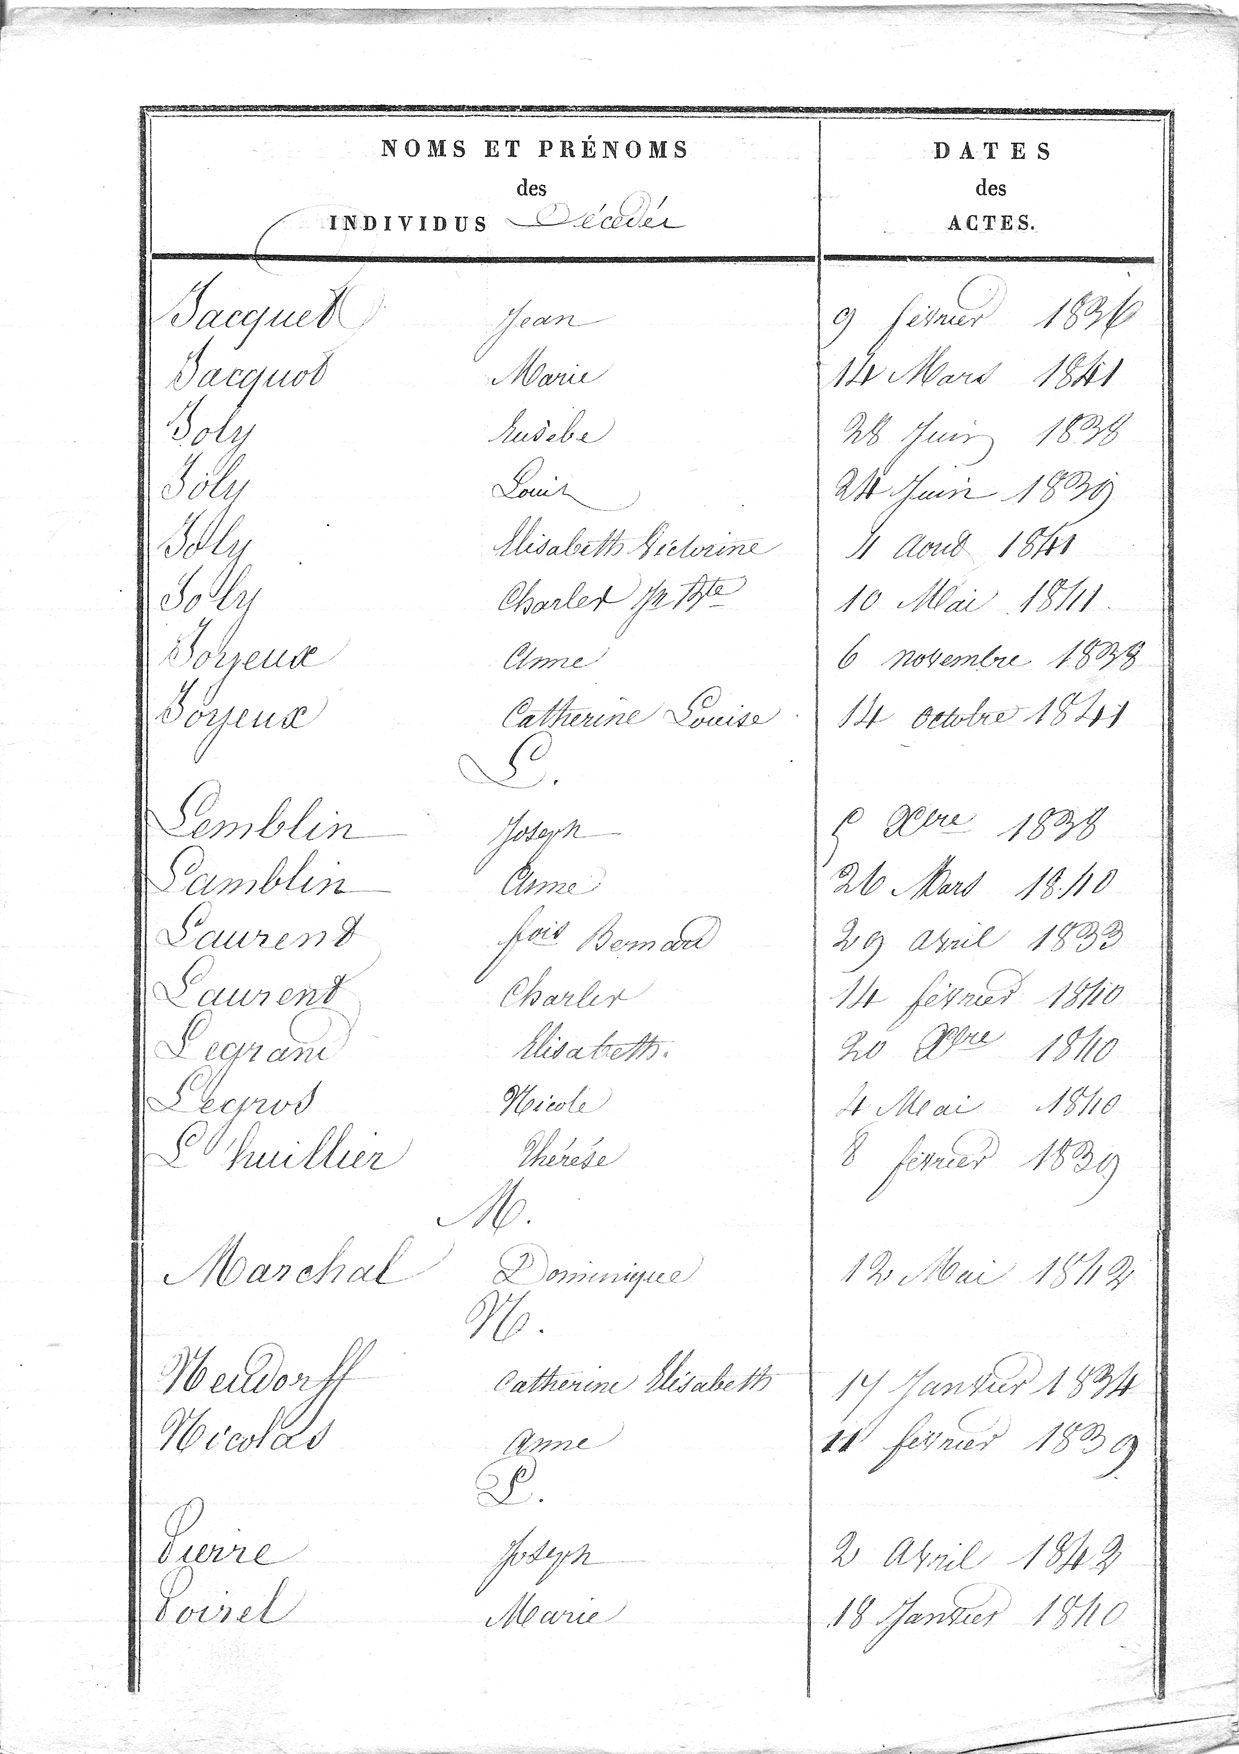 NOMS ET PRÉNOMS DATES
des des
INDIVIDUS Décédés ACTES.
Jacquet Jean 9 février 1836
Jacquot Marie 14 Mars 1841
Joly Eusèbe 28 Juin 1838
Joly Louis 24 Juin 1839
Joly Elisabeth Victorine 4 Aout 1841
Joly Charles Jn Bte 10 Mai 1841
Joyeux Anne 6 novembre 1838
Joyeux Catherine Louise 14 octobre 1841
L.
Lemblin Joseph 5 Xbre 1838
Lamblin Anne 26 Mars 1840
Laurent fois Bernard 29 avril 1833
Laurent Charles 14 février 1840
Legrand Elisabeth. 20 Xbre 1840
Legros Nicole 4 Mai 1840
L'huillier Thérése 8 février 1839
M.
Marchal Dominique 12 Mai 1842
N.
Neudorff Catherine Elisabeth 17 Janvier 1834
Nicolas Anne 11 février 1839
P.
Pierre Joseph 2 Avril 1842
Poirel Marie 18 Janvier 1840